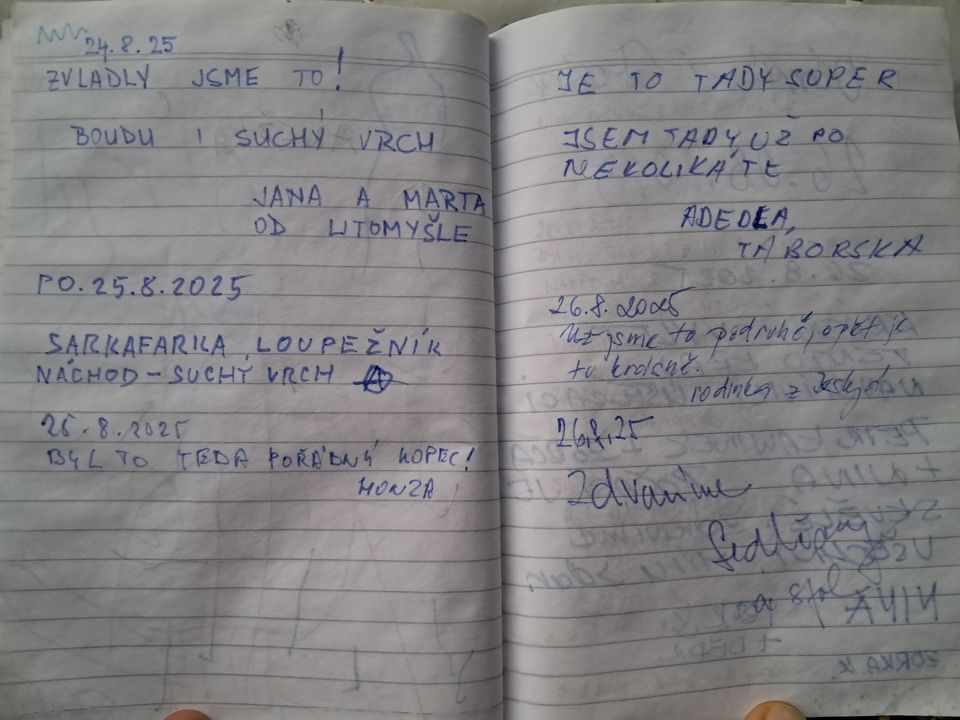 24.8.25
ZVLADLY JSME TO!
BOUDU I SUCHÝ VRCH
JANA A MARTA
OD LITOMYŠLE
PO. 25.8.2025
SARKAFARKA, LOUPEŽNÍK
NÁCHOD - SUCHÝ VRCH
25.8.2025
BYL TO TEDA POŘÁDNÝ KOPEC!
HONZA
JE TO TADY SUPER
JSEM TADY UŽ PO
NEKOLIKÁTE
ADEDLA,
TÁBORSKA
26.8.2025
Už jsme tu podruhé, opět je
to krásné.
rodinka z
26.8.25
Zdravíme
a spol